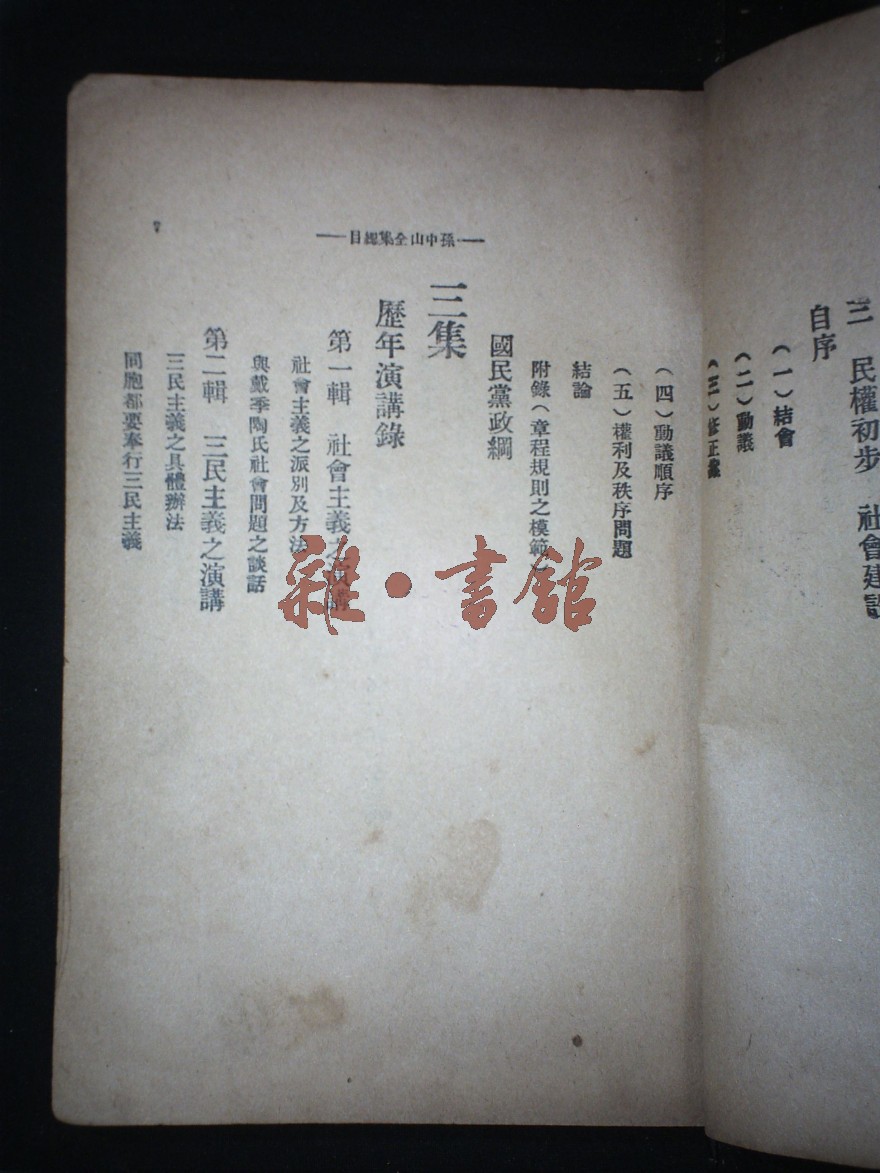 三　民權初步　社會建設
自序
（一）結會
（二）動議
（三）修正議
（四）動議順序
（五）權利及秩序問題
結論
附錄（章程規則之模範）
國民黨政綱
三集
歷年演講錄
第一輯　社會主義之演講
社會主義之派別及方法
與戴季陶氏社會問題之談話
第二輯　三民主義之演講
三民主義之具體辦法
同胞都要奉行三民主義
孫中山全集總目
7
雜·書館